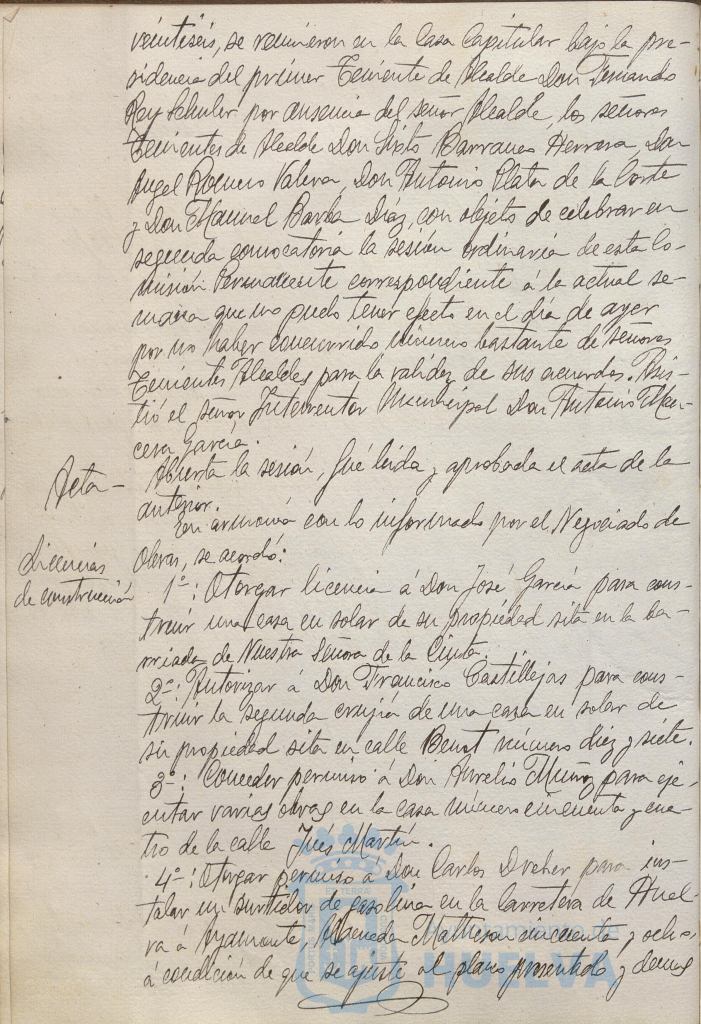 veintiseis, se reunieron en la Casa Capitular bajo la pre-
sidencia del primer Teniente de Alcalde Don Fernando
Rey Schuler por ausencia del señor Alcalde, los señores
Tenientes de Alcalde Don Sixto Barranco Herrera, Don
Angel Romero Valera, Don Antonio Plata de la Corte
y Don Manuel Barba Diáz, con objeto de celebrar en
segunda convocatoria la sesión ordinaria de esta Co-
misión Permanente correspondiente á la actual se-
mana que no pudo tener efecto en el día de ayer
por no haber concurrido número bastante de señores
Tenientes Alcaldes para la validez de sus acuerdos. Asis-
tió el señor Interventor Municipal Don Antonio Man-
cera García.
Acta - Abierta la sesión, fué leida y aprobada el acta de la
anterior.
En armonía con lo informado por el Negociado de
Licencias de construcción
Obras, se acordó:
1º: Otorgar licencia á Don José García para cons-
truir una casa en solar de su propiedad sita en la ba-
rriada de Nuestra Señora de la Cinta.
2º: Autorizar á Don Francisco Castillejos para cons-
truir la segunda crujía de una casa en solar de
su propiedad sita en calle Benot número diez y siete.
3º: Conceder permiso á Don Aurelio Muñoz para eje-
cutar varias obras en la casa número cincuenta y cua-
tro de la calle Inés Martín.
4º: Otorgar permiso á Don Carlos Dreher para ins-
talar un surtidor de gasolina en la Carretera de Huel-
va á Ayamonte, Alameda Matheson cincuenta y ocho,
á condición de que se ajuste al plano presentado y demas
Ayuntamiento de
HUELVA